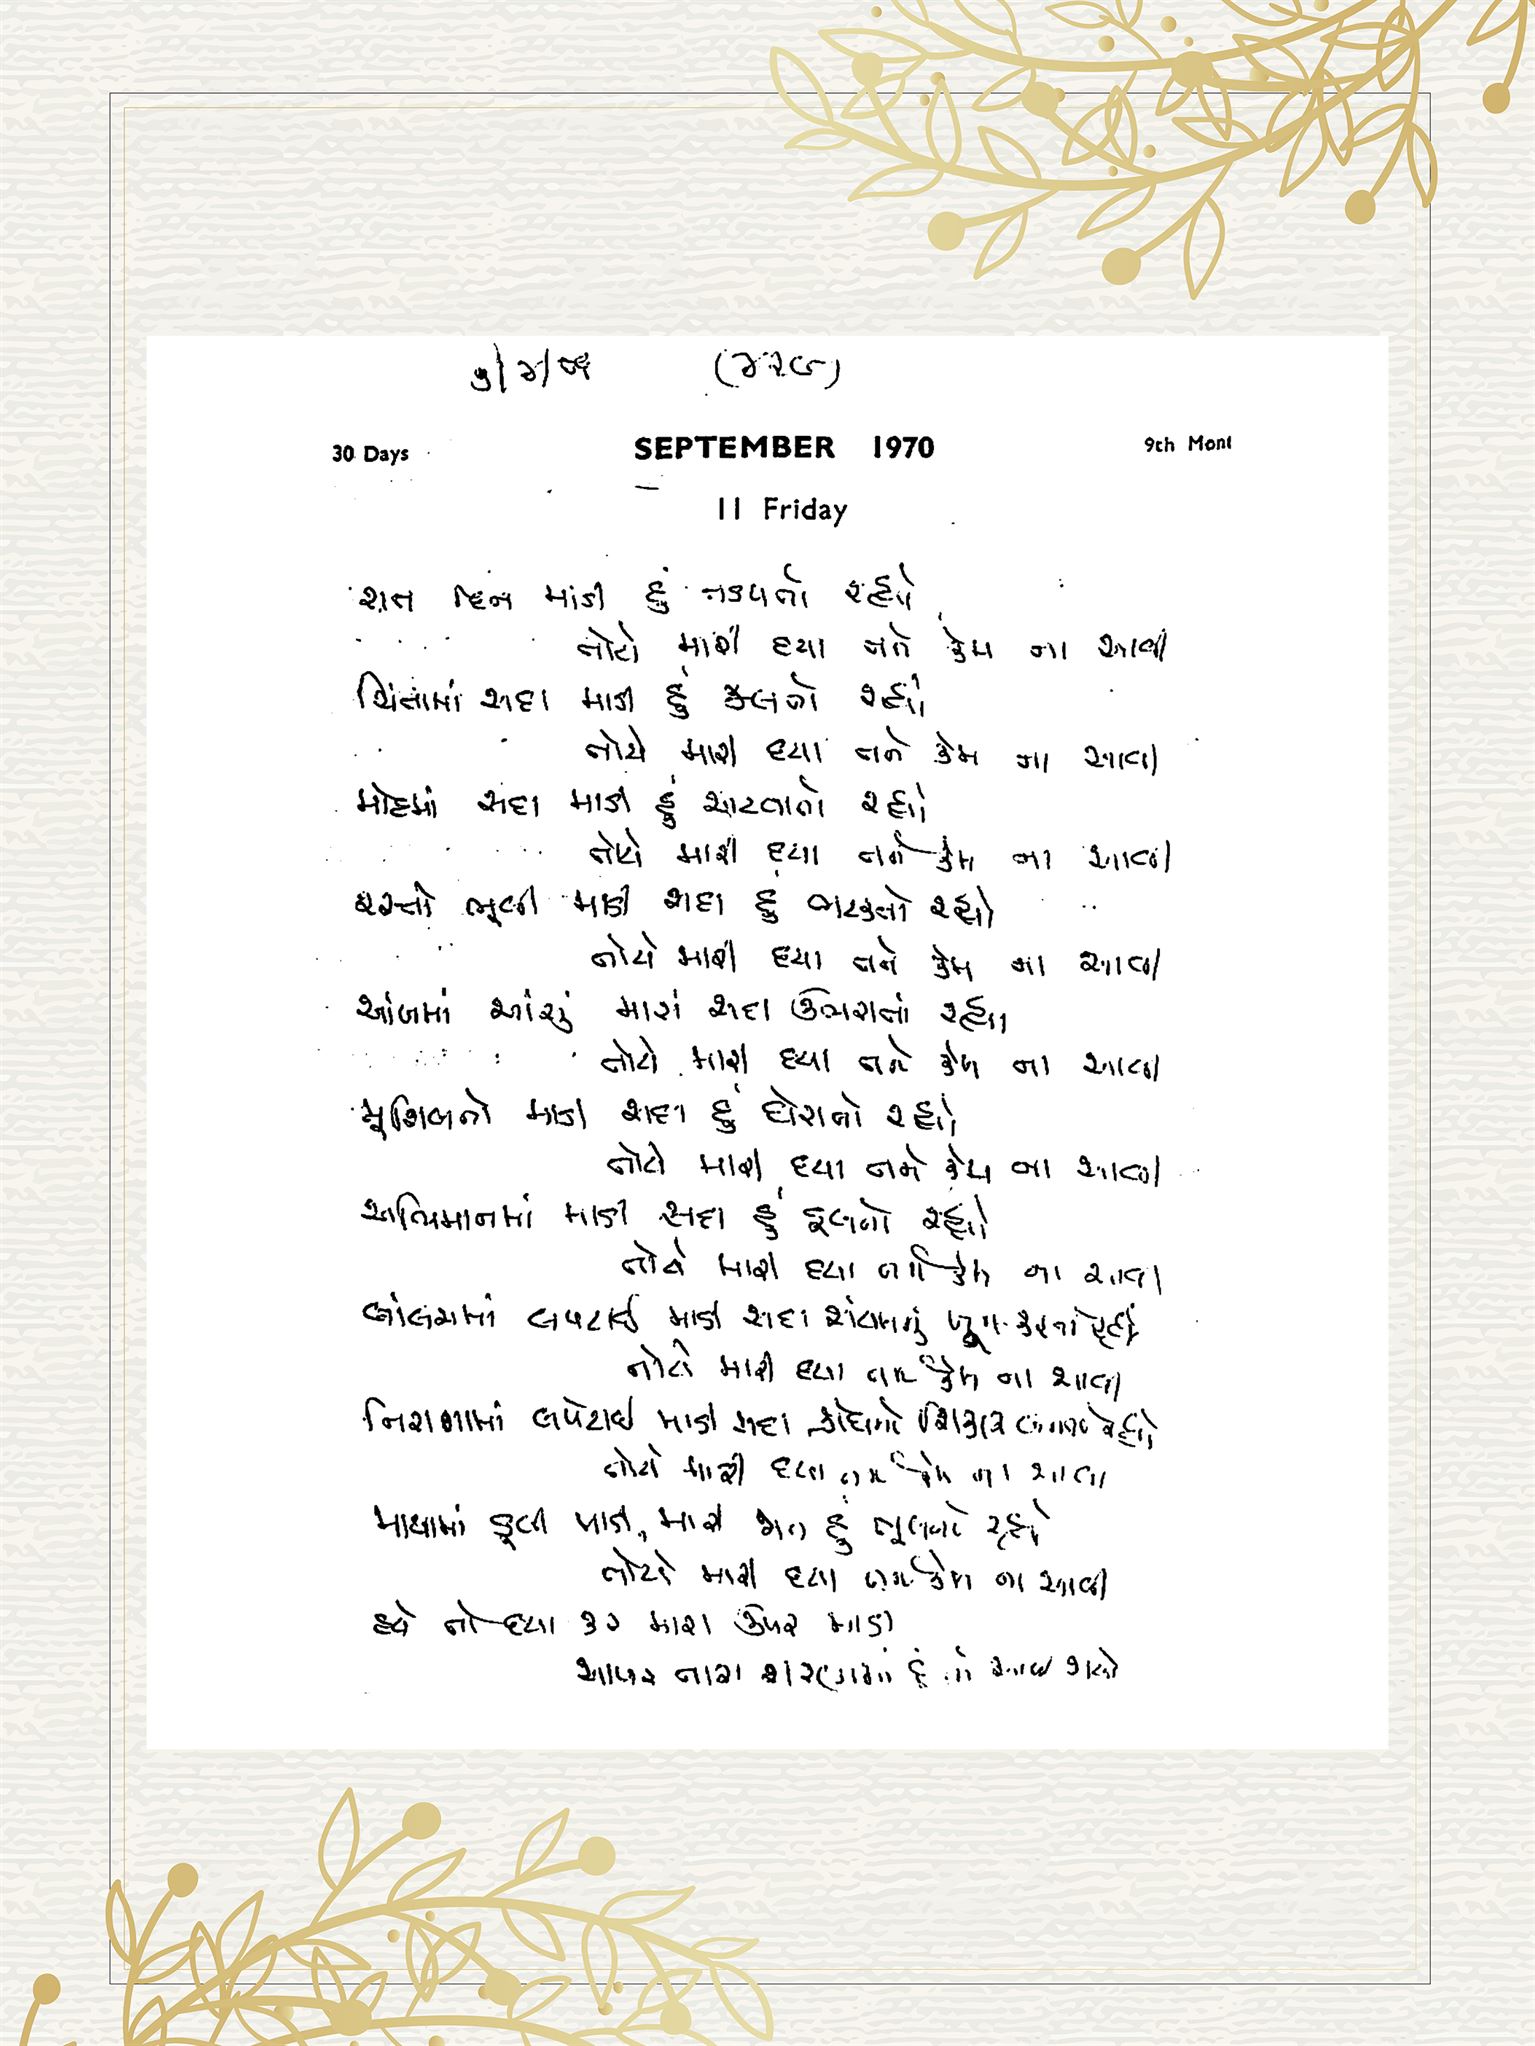 (૩૨૯)
30 Days SEPTEMBER 1970 9th Mont
11 Friday
રાત દિન માડી હું તડપતો રહ્યો
તોયે મારી દયા તને કેમ ના આવી
ચિંતામાં સદા માડી હું રહ્યો
તોયે મારી દયા તને કેમ ના આવી
મોહમાં સદા માડી હું અટવાતો રહ્યો
તોયે મારી દયા તને કેમ ના આવી
રસ્તો ભૂલી માડી સદા હું ભટકતો રહ્યો
તોયે મારી દયા તને કેમ ના આવી
આંખમાં આંસું મારાં સદા ઉભરાતાં રહ્યા
તોયે મારી દયા તને કેમ ના આવી
માડી સદા હું ઘેરાતો રહ્યો
તોયે મારી દયા તને કેમ ના આવી
અભિમાનમાં માડી સદા હું ડૂલતો રહ્યો
તોયે મારી દયા તને કેમ ના આવી
લપટાઈ માડી સદા રહ્યો
તોયે મારી દયા તને કેમ ના આવી
નિરાશામાં લપેટાઈ માડી સદા ક્રોધનો શિકાર બનતો રહ્યો
તોયે મારી દયા તને કેમ ના આવી
માયામાં ડૂબી માડી, મારી જાત હું ભૂલતો રહ્યો
તોયે મારી દયા તને કેમ ના આવી
હવે તો દયા કર મારા ઉપર માડી
આખર તારા શરણમાં હું તો આવી ગયો